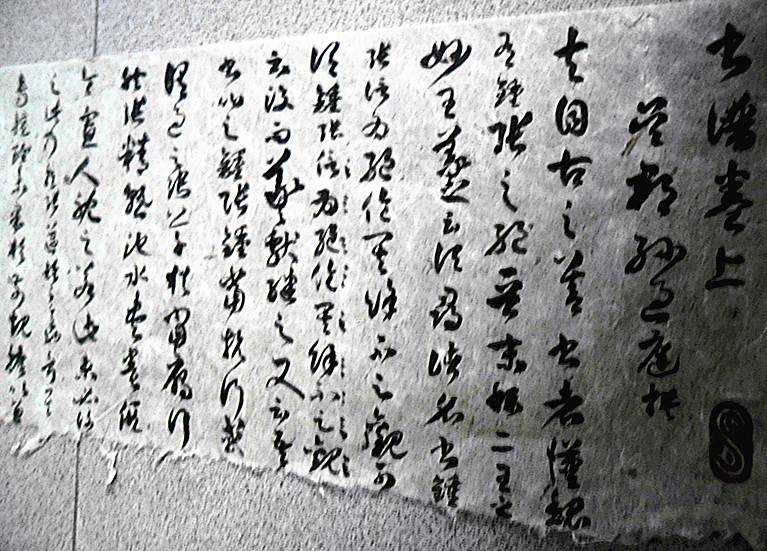 書譜卷上
吳郡孫過庭撰
夫自古之善書者漢魏
有鍾張之絕晉末稱二王之
妙王羲之云頃尋諸名書鍾
張信為絕倫其餘不足觀可
謂鍾張信為絕倫其餘不足觀
云沒而羲獻繼之又云吾
書比之鍾張鍾當抗行或
謂過之張草猶當雁行
然張精熟池水盡墨假
令寡人耽之若此未必謝
之此乃推張邁鍾之意也
考其專擅雖未果於前規摭以兼